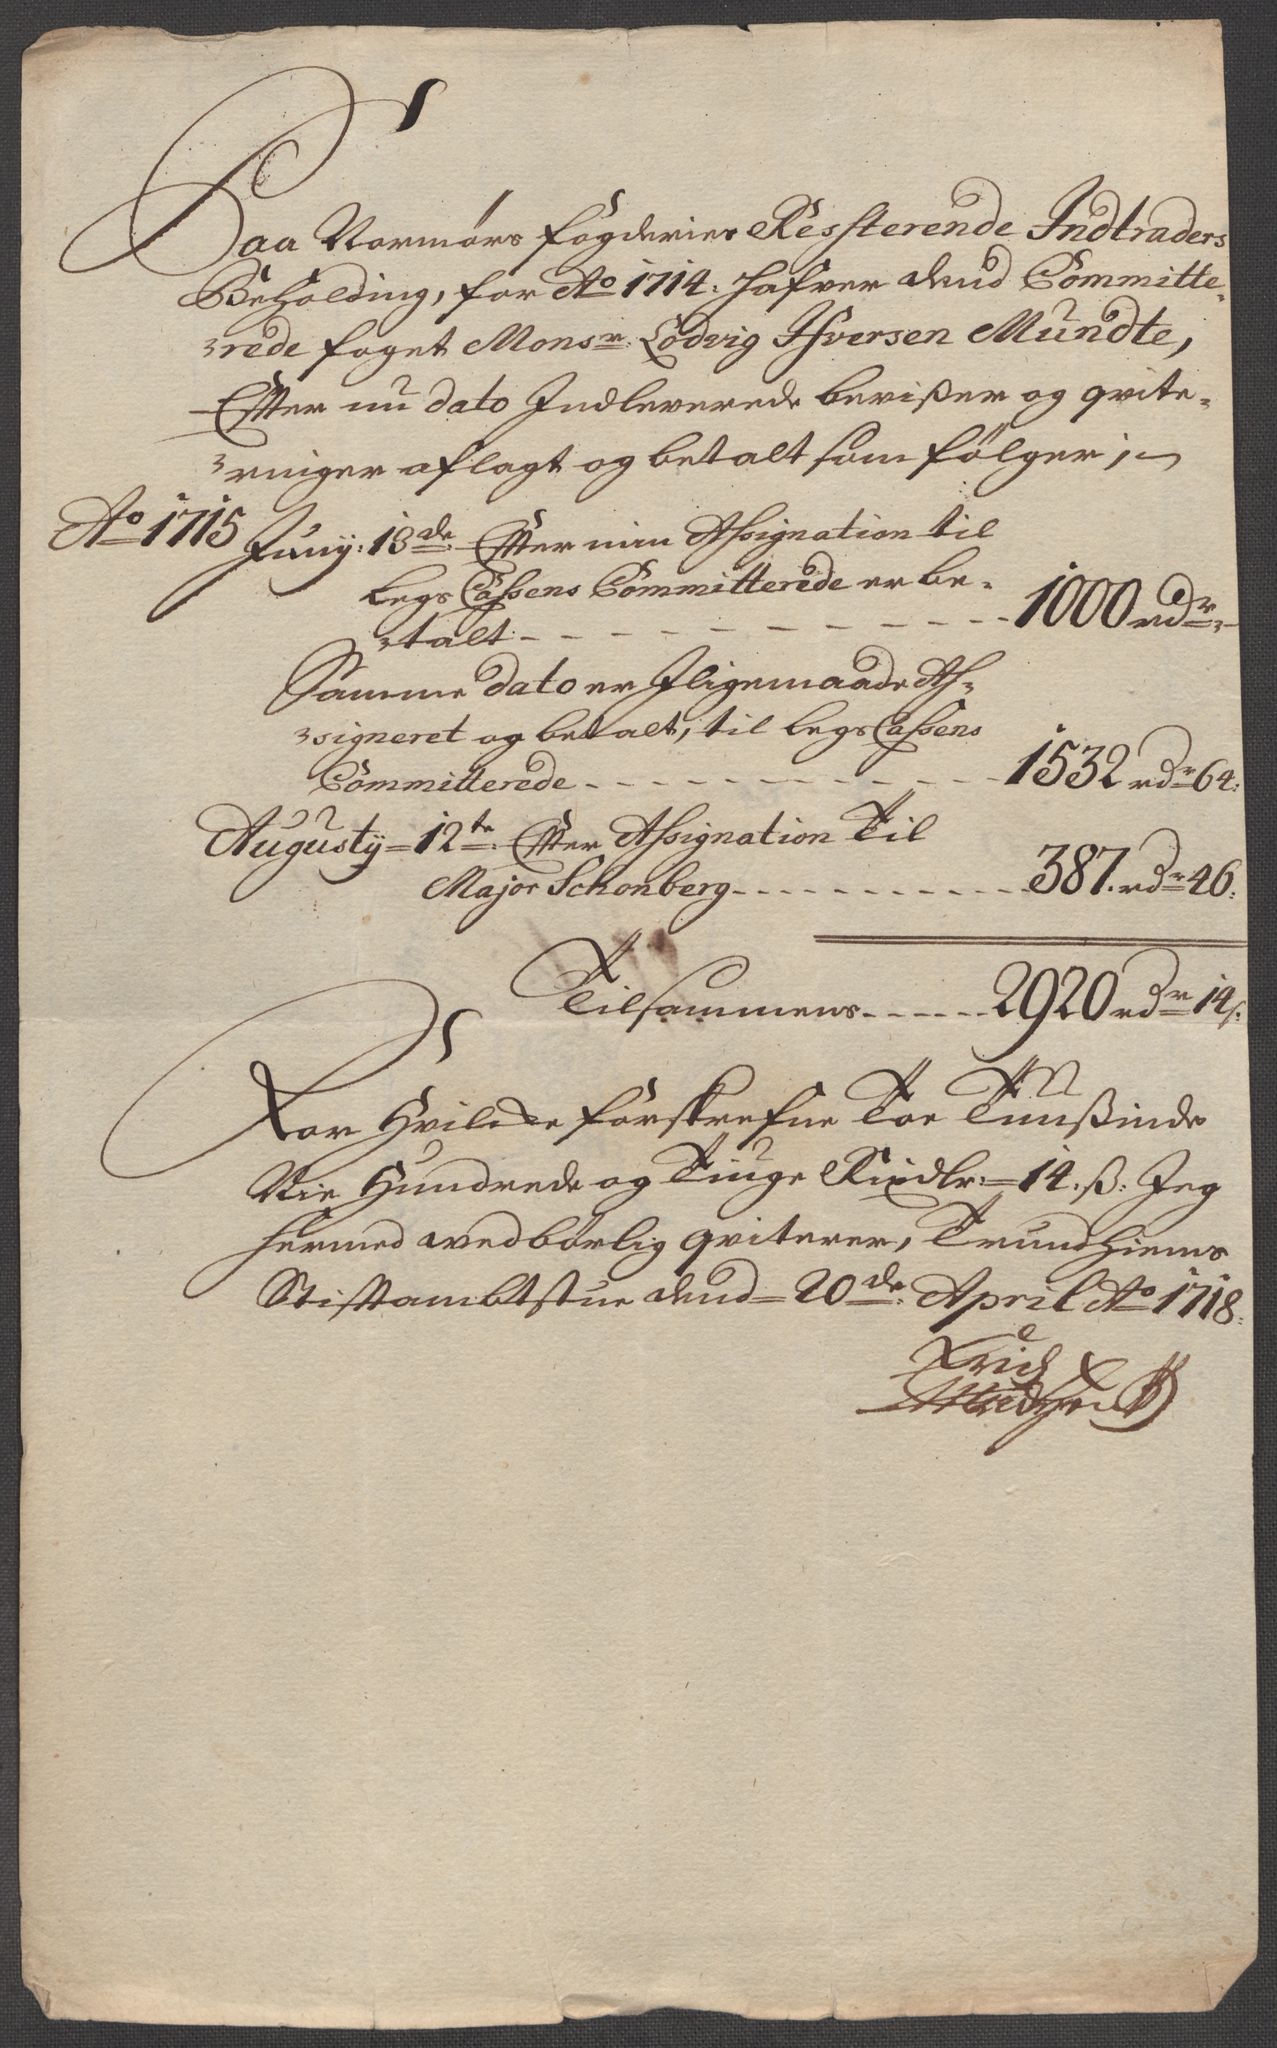 Paa Normørs fogderies Ressterende Indtraders
Beholding, for Ao 1714. hafver dend Committe-
rede foget Monsr. Lodvig Ifversen Mundte,
Effter nu dato Indleverede bevißer og qvite-
ringer aflagt og betalt som følger;
Ao 1715 Junij: 13de Effter min Assignation til
legs Cassens Committerede er be-
talt - - - - - - - - - - - 1000 rdr -
Samme dato er Iligemaade As-
signeret og betalt, til legs Cassens
Committerede - - - - - - - - - 1532 rdr 64:
Augustij = 12te. Effter Assignation Til
Major Schonberg - - - - - - - - 387. rdr 46:
Tilsammens - - - - - 2920 rdr 14 s.
For Hvilcke forskrefne Toe Tuußinde
Nie Hundrede og Tiuge Rixdlr = 14. ß: Jeg
hermed vedbørlig qviterer, Trundhiems
Stifftambtstue dend = 20de. April Ao 1718.
Erich